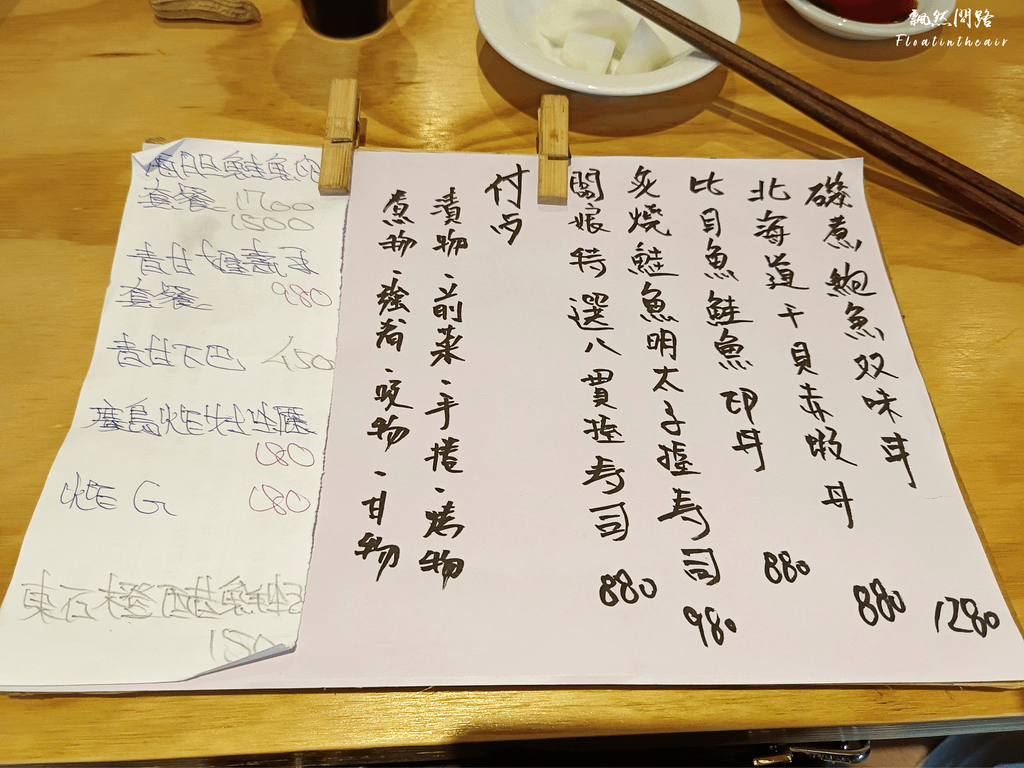 飄然問路
Floatintheair
磯煮鮑魚双味丼
1280
北海道干貝赤蝦丼
880
比目魚鮭魚卵丼
880
炙燒鮭魚明太子握寿司
980
闆娘特選八貫握寿司
880
付
漬物、前菜、手捲、烤物
煮物、強肴、咬物、甘物
鮭魚卵
套餐 1700
1500
青甘握壽司
套餐 980
青甘下巴 450
廣島炸牡
180
炸G 180
東石
180